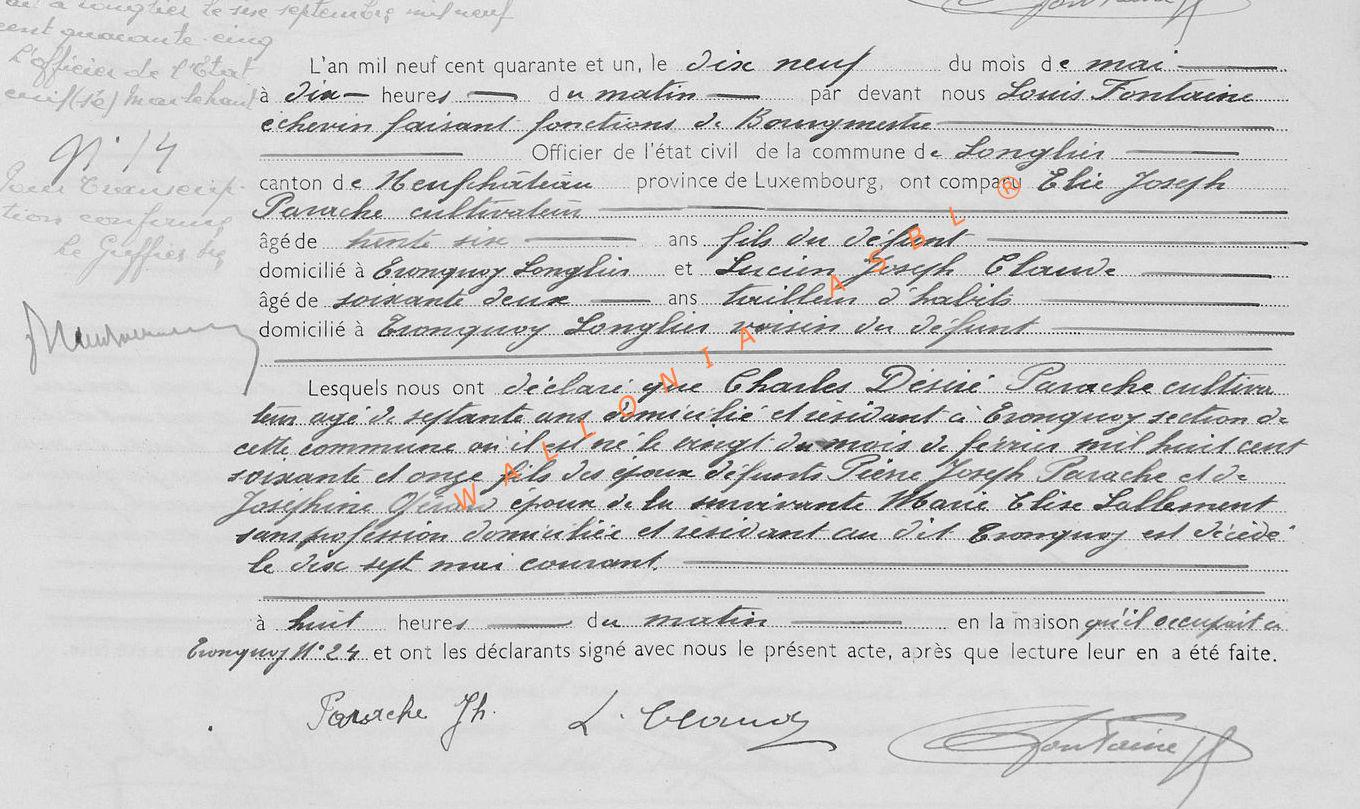 à Longlier le six septembre mil neuf
cent quarante-cinq
L'officier de l'Etat
civil (sé) Marechant
Fontaine
N° 14
Pour Transcrip-
tion conforme
Le Greffier
L'an mil neuf cent quarante et un, le dix neuf du mois de mai
à dix heures du matin par devant nous Louis Fontaine
echevin faisant fonctions de Bourgmestre
Officier de l'état civil de la commune de Longlier
canton de Neufchâteau province de Luxembourg, ont comparu Elie Joseph
Parache cultivateur
âgé de trente six ans fils du défunt
domicilié à Tronquoy Longlier et Lucien Joseph Claude
âgé de soixante deux ans tailleur d'habits
domicilié à Tronquoy Longlier voisin du défunt
Lesquels nous ont déclaré que Charles Désiré Parache cultiva
teur agé de septante ans domicilié et résidant à Tronquoy section de
cette commune où il est né le vingt du mois de février mil huit cent
soixante et onze fils des epoux défunts Pierre Joseph Parache et de
Joséphine Gérard epoux de la survivante Marie Elise Lallement
sans profession domiciliée et résidant au dit Tronquoy est décédé
le dix sept mai courant.
à huit heures du matin en la maison qu'il occupait à
Tronquoy N° 24 et ont les déclarants signé avec nous le présent acte, après que lecture leur en a été faite.
Parache Jh. L. Claude Fontaine
WALLONIA ASBL ®